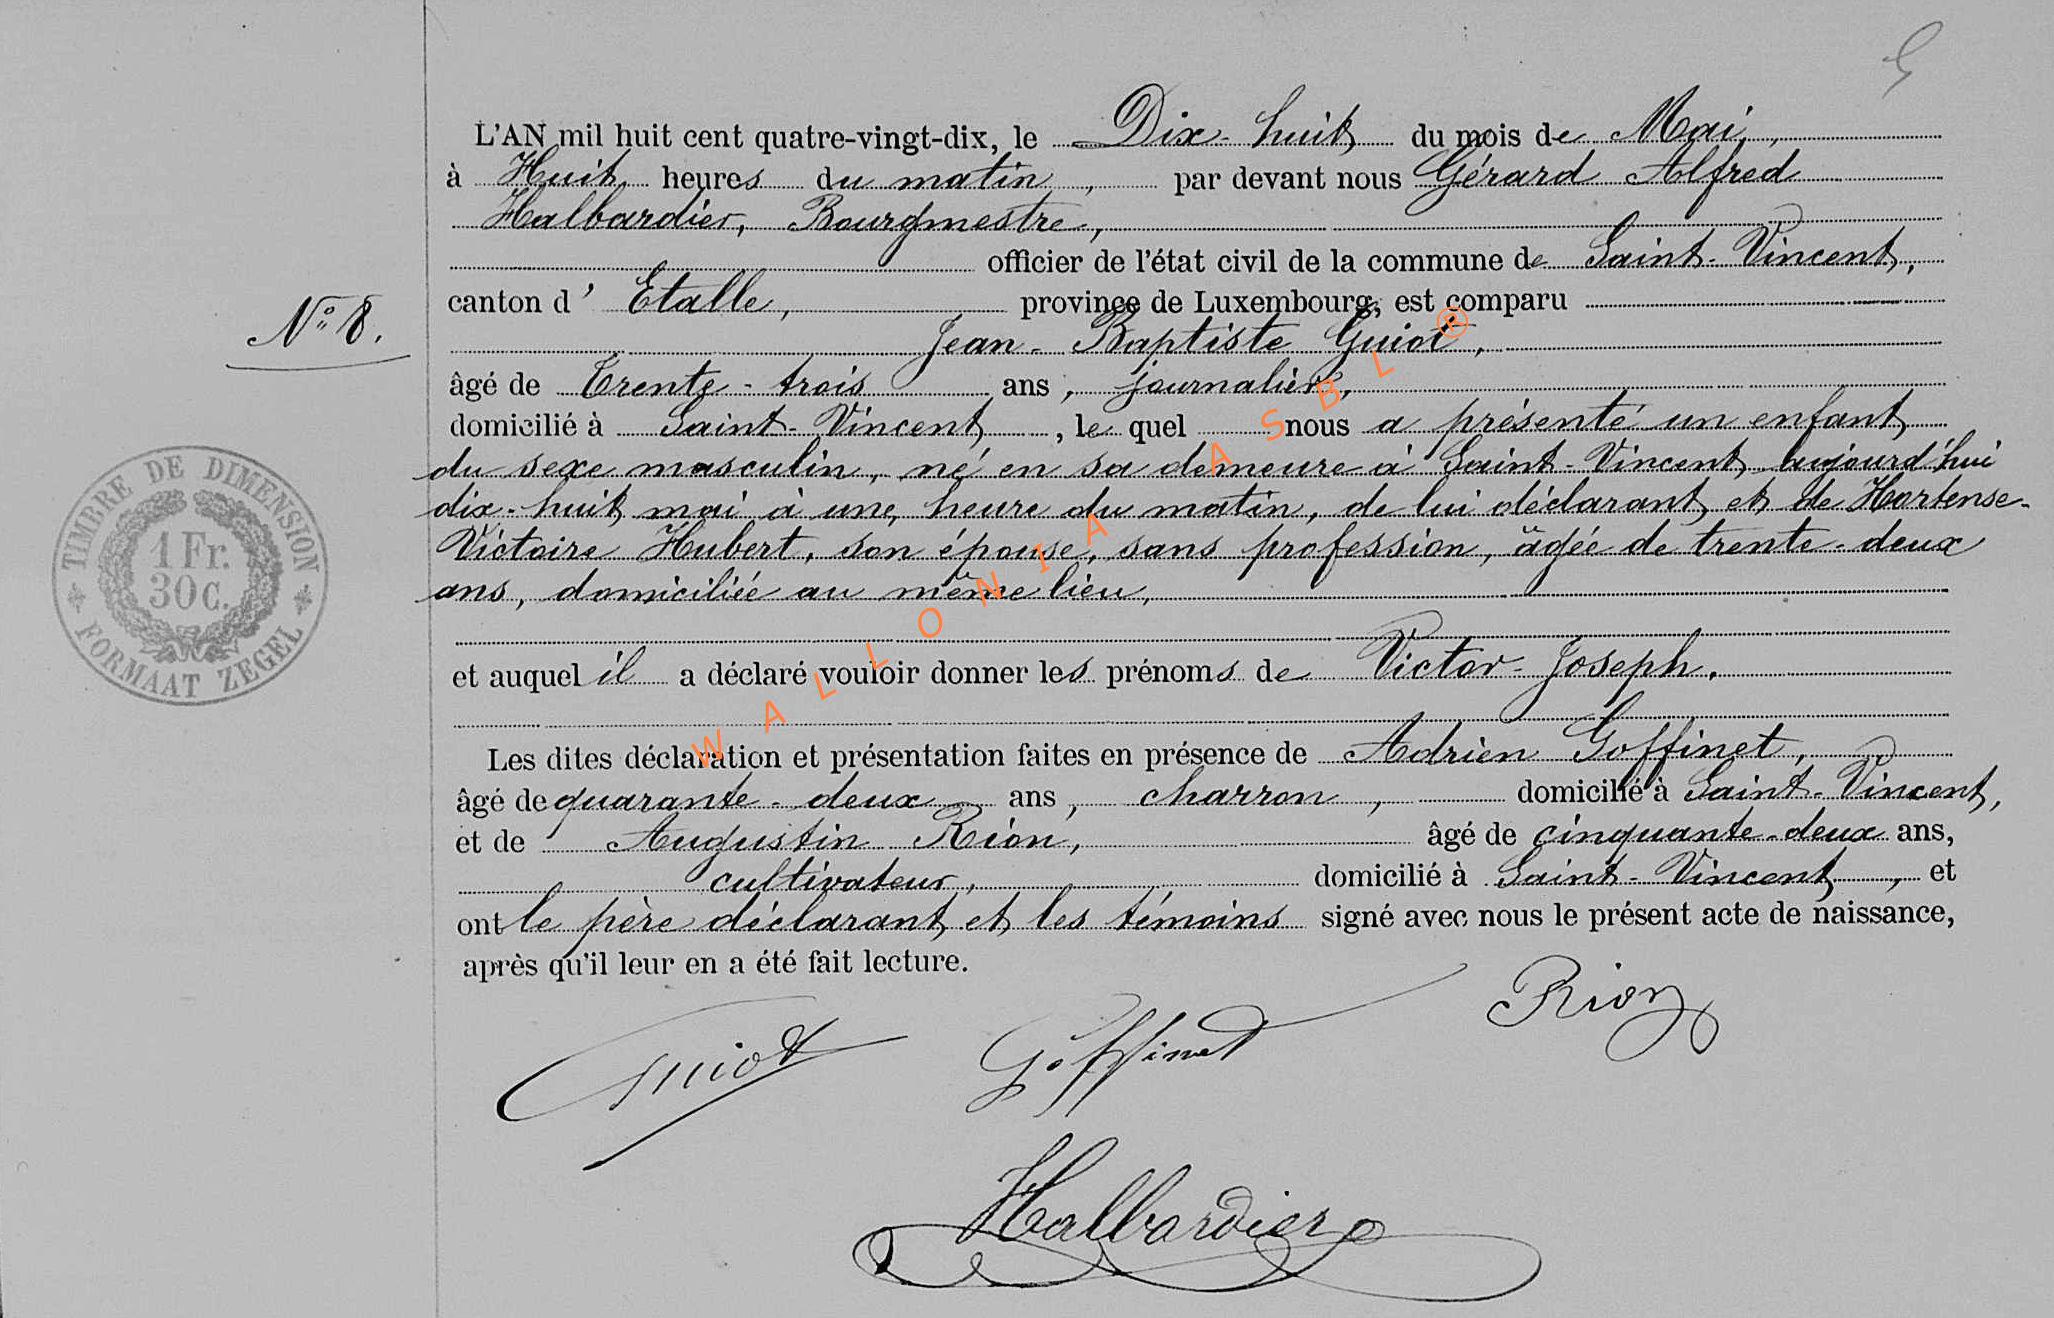 5
L'AN mil huit cent quatre-vingt-dix, le Dix-huit du mois de Mai,
à Huit heures du matin, par devant nous Gérard Alfred
Halbardier, Bourgmestre,
officier de l'état civil de la commune de Saint-Vincent,
canton d' Etalle, province de Luxembourg, est comparu
N° 8.
Jean-Baptiste Guiot,
âgé de Trente-trois ans, journalier,
domicilié à Saint-Vincent, le quel nous a présenté un enfant
du sexe masculin, né en sa demeure à Saint-Vincent aujourd'hui
dix-huit mai à une heure du matin, de lui déclarant et de Hortense-
Victoire Hubert, son épouse, sans profession, âgée de trente-deux
ans, domiciliée au même lieu,
TIMBRE DE DIMENSION
1 Fr.
30 C.
FORMAAT ZEGEL
et auquel il a déclaré vouloir donner les prénoms de Victor-Joseph.
Les dites déclaration et présentation faites en présence de Adrien Goffinet,
âgé de quarante-deux ans, charron, domicilié à Saint-Vincent,
et de Augustin Rion, âgé de cinquante-deux ans,
cultivateur, domicilié à Saint-Vincent, et
ont le père déclarant et les témoins signé avec nous le présent acte de naissance,
après qu'il leur en a été fait lecture.
Guiot Goffinet Rion
Halbardier
WALLONIA ASBL®